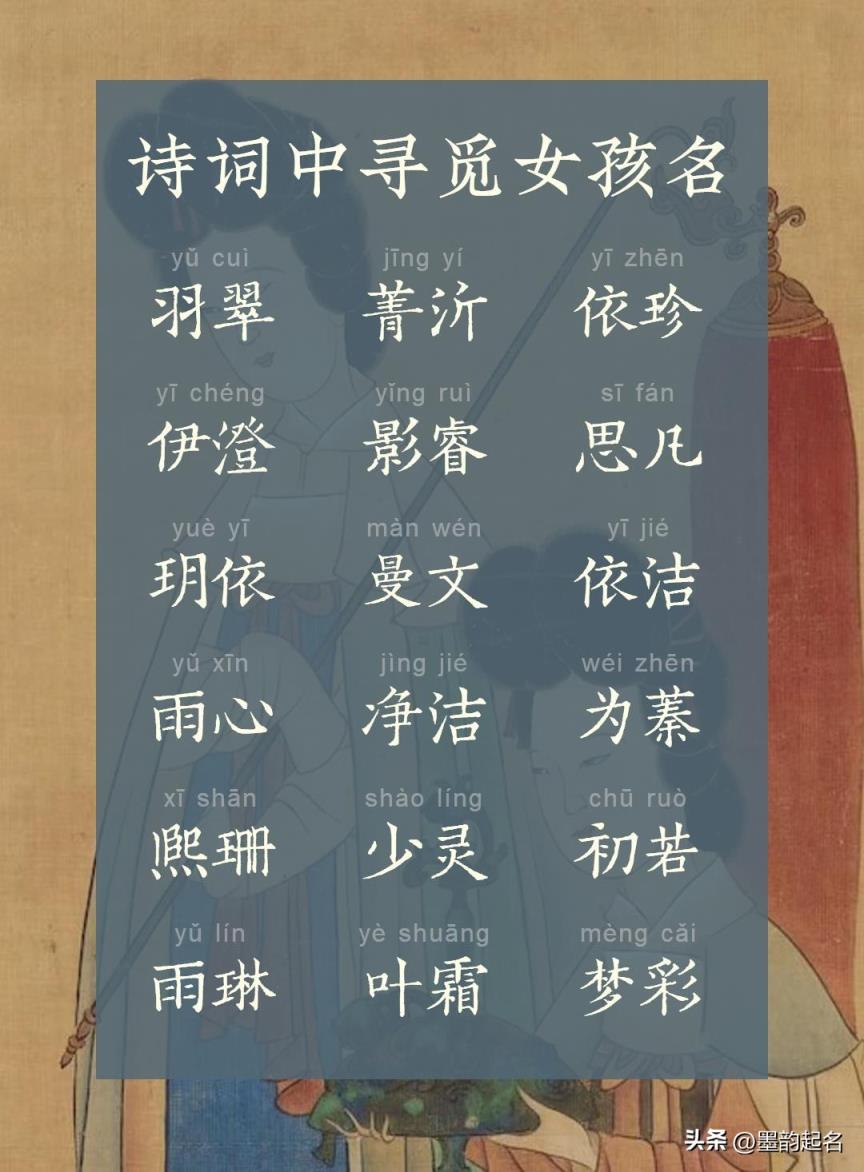 诗词中寻觅女孩名
yǔ cuì jīng yí yī zhēn
羽翠 菁沂 依珍
yī chéng yǐng ruì sī fán
伊澄 影睿 思凡
yuè yī màn wén yī jié
玥依 曼文 依洁
yǔ xīn jìng jié wéi zhēn
雨心 净洁 为蓁
xī shān shào líng chū ruò
熙珊 少灵 初若
yǔ lín yè shuāng mèng cǎi
雨琳 叶霜 梦彩
头条 @墨韵起名